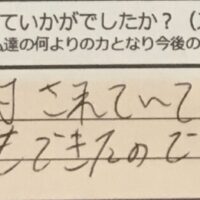 ていかがでしたか？（
ム達の何よりの力となり今後の
されていて
できたので